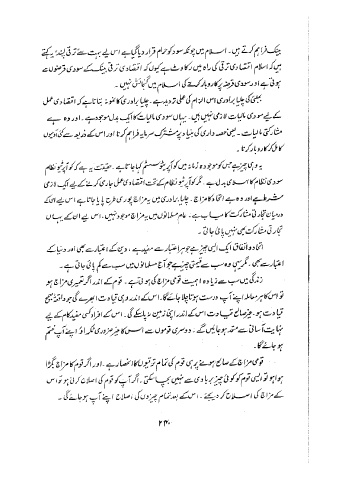 بینک فراہم کرتے ہیں۔ اسلام میں چونکہ سود کو حرام قرار دیا گیا ہے اس لیے بہت سے ترقی پسند یہ کہتے
ہیں کہ اسلام اقتصادی ترقی کی راہ میں رکاوٹ ہے کیوں کہ اقتصادی ترقی بینک کے سودی قرضوں سے
ہوتی ہے اور سودی قرضہ پر کاروبار کرنے کی اسلام میں گنجائش نہیں۔
بمبئی کی چلیا برادری اس الزام کی عملی تردید ہے۔ چلیا برادری کا نمونہ بتاتا ہے کہ اقتصادی عمل
کے لیے سودی مالیات لازمی نہیں ہیں۔ یہاں سودی مالیات کا ایک بدل موجود ہے۔ اور وہ ہے
مشارکتی مالیات۔ یعنی حصہ داری کی بنیاد پر مشترک سرمایہ فراہم کرنا اور اس کے ذریعہ سے کئی آدمیوں
کا مل کر کاروبار کرنا۔
یہ وہی چیز ہے جس کو موجودہ زمانہ میں کوآپریٹو سسٹم کہا جاتا ہے۔ حقیقت یہ ہے کہ کوآپریٹو نظام
سودی نظام کا اسلامی بدل ہے۔ مگر کوآپریٹو نظام کے تحت اقتصادی عمل جاری کرنے کے لیے ایک لازمی
شرط ہے اور وہ ہے اتحاد کا مزاج۔ چلیا برادری میں یہ مزاج پوری طرح پایا جاتا ہے اس لیے ان کے
درمیان تجارتی مشارکت کامیاب ہے۔ عام مسلمانوں میں یہ مزاج موجود نہیں، اس لیے ان کے یہاں
تجارتی مشارکت بھی نہیں پائی جاتی۔
اتحاد و اتفاق ایک ایسی چیز ہے جو ہر اعتبار سے مفید ہے، دین کے اعتبار سے بھی اور دنیا کے
اعتبار سے بھی، مگر یہی وہ سب سے قیمتی چیز ہے جو آج مسلمانوں میں سب سے کم پائی جاتی ہے۔
زندگی میں سب سے زیادہ اہمیت قومی مزاج کی ہوتی ہے۔ قوم کے اندر اگر تعمیری مزاج ہو
تو اس کا ہر معاملہ اپنے آپ درست ہوتا چلا جائے گا۔ اس کے اندر وہی قیادت ابھرے گی جو واقعۃً صحیح
قیادت ہو۔ غیر صالح قیادت اس کے اندر اپنی زمین نہ پا سکے گی۔ اس کے افراد کسی مفید کام کے لیے
نہایت آسانی سے متحد ہو جائیں گے۔ دوسری قوموں سے اس کا غیر ضروری ٹکراؤ اپنے آپ ختم
ہو جائے گا۔
قومی مزاج کے صالح ہونے پر ہی قوم کی تمام ترقیوں کا انحصار ہے۔ اور اگر قوم کا مزاج بگڑا
ہوا ہو تو ایسی قوم کو کوئی چیز بربادی سے نہیں بچا سکتی۔ اگر آپ کو قوم کی اصلاح کرنی ہو تو اس
کے مزاج کی اصلاح کر دیجئے۔ اس کے بعد تمام چیزوں کی اصلاح اپنے آپ ہو جائے گی۔
۲۴۰